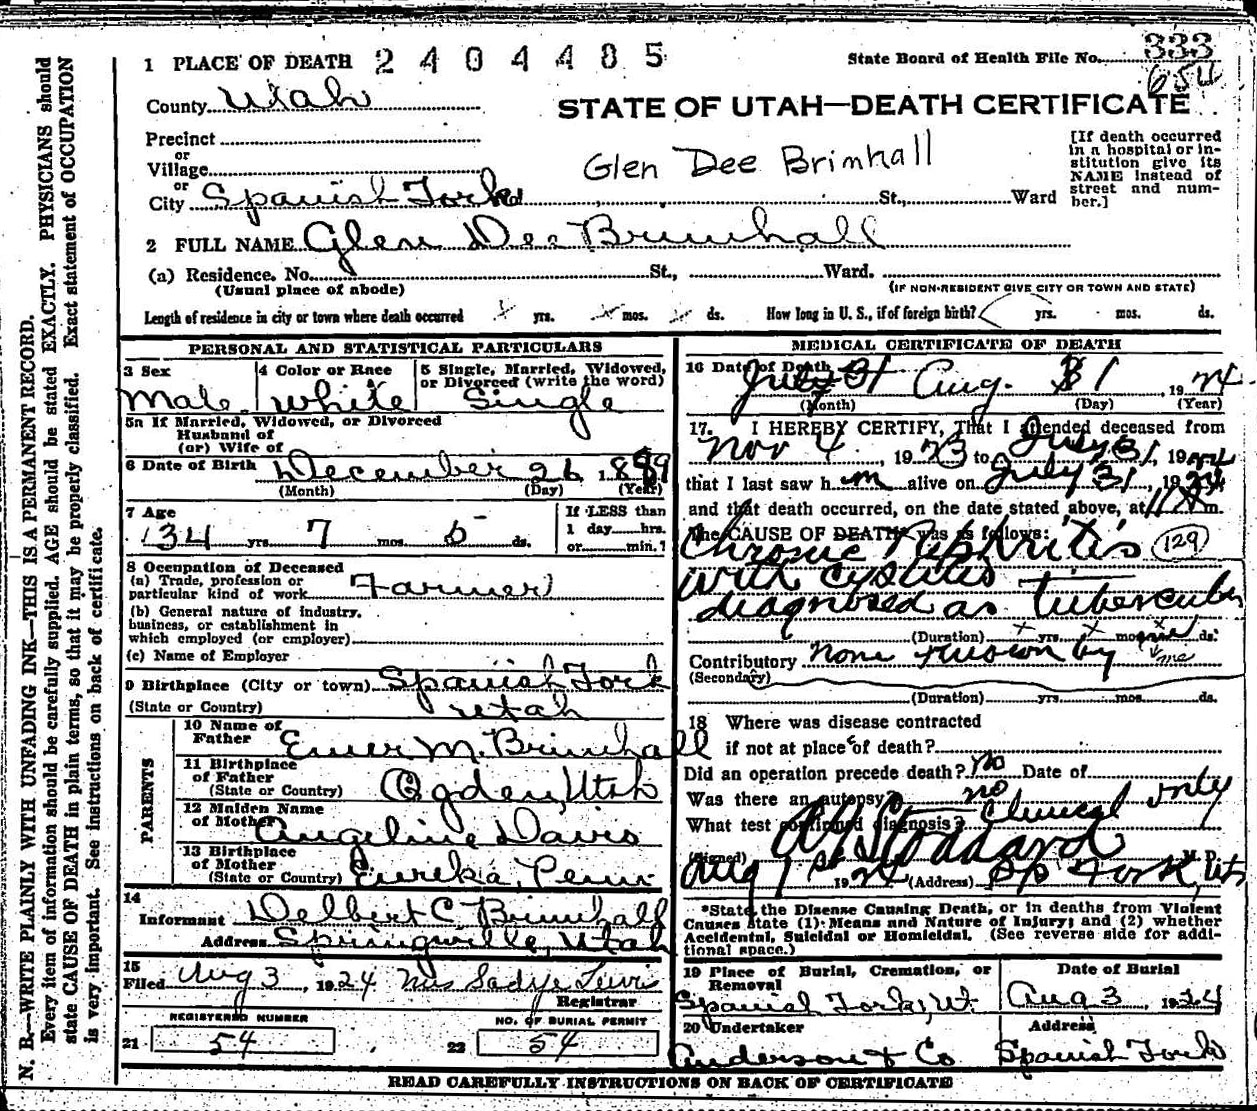 1 PLACE OF DEATH 2404485 State Board of Health File No. 333
654
County Utah
STATE OF UTAH—DEATH CERTIFICATE
Precinct
or
Village
or
City Spanish Fork St., Ward
Glen Dee Brimhall
[If death occurred
in a hospital or in-
stitution give its
NAME instead of
street and num-
ber.]
2 FULL NAME Glen Dee Brimhall
(a) Residence. No. St., Ward.
(Usual place of abode) (IF NON-RESIDENT GIVE CITY OR TOWN AND STATE)
Length of residence in city or town where death occurred yrs. mos. ds. How long in U. S., if of foreign birth? yrs. mos. ds.
PERSONAL AND STATISTICAL PARTICULARS
3 Sex Male
4 Color or Race White
5 Single, Married, Widowed,
or Divorced (write the word)
Single
5a If Married, Widowed, or Divorced
Husband of
(or) Wife of
6 Date of Birth December 26, 1889
(Month) (Day) (Year)
7 Age
34 yrs. 7 mos. 5 ds.
If LESS than
1 day hrs.
or min.?
8 Occupation of Deceased
(a) Trade, profession or
particular kind of work Farmer
(b) General nature of industry,
business, or establishment in
which employed (or employer)
(c) Name of Employer
9 Birthplace (City or town) Spanish Fork
(State or Country) Utah
PARENTS
10 Name of
Father Emer M. Brimhall
11 Birthplace
of Father
(State or Country) Ogden, Utah
12 Maiden Name
of Mother Angeline Davis
13 Birthplace
of Mother
(State or Country) Eureka, Penn.
14
Informant Delbert C Brimhall
Address Springville, Utah
15
Filed Aug 3, 1924 Mrs Sadye Lewis
Registrar
REGISTERED NUMBER NO. OF BURIAL PERMIT
21 54 22 54
MEDICAL CERTIFICATE OF DEATH
16 Date of Death
July 31 Aug. 31, 1924
(Month) (Day) (Year)
17. I HEREBY CERTIFY, That I attended deceased from
Nov 4, 1923 to July 31, 1924
that I last saw h m alive on July 31, 1924
and that death occurred, on the date stated above, at 11 m.
The CAUSE OF DEATH* was as follows:
Chronic Nephritis (129)
with cystitis
diagnosed as Tubercular
(Duration) yrs. mos. ds.
Contributory None known by me
(Secondary)
(Duration) yrs. mos. ds.
18 Where was disease contracted
if not at place of death?
Did an operation precede death? No Date of
Was there an autopsy? no
What test confirmed diagnosis? Clinical only
(Signed) Stoddard M. D.
Aug 1st 1924 (Address) Sp Fork, Ut
*State the Disease Causing Death, or in deaths from Violent
Causes state (1) Means and Nature of Injury; and (2) whether
Accidental, Suicidal or Homicidal. (See reverse side for addi-
tional space.)
19 Place of Burial, Cremation, or
Removal
Spanish Fork, Ut.
Date of Burial
Aug 3 1924
20 Undertaker
Anderson & Co
Address
Spanish Fork
READ CAREFULLY INSTRUCTIONS ON BACK OF CERTIFICATE
N. B.—WRITE PLAINLY WITH UNFADING INK—THIS IS A PERMANENT RECORD.
Every item of information should be carefully supplied. AGE should be stated EXACTLY. PHYSICIANS should
state CAUSE OF DEATH in plain terms, so that it may be properly classified. Exact statement of OCCUPATION
is very important. See instructions on back of certificate.